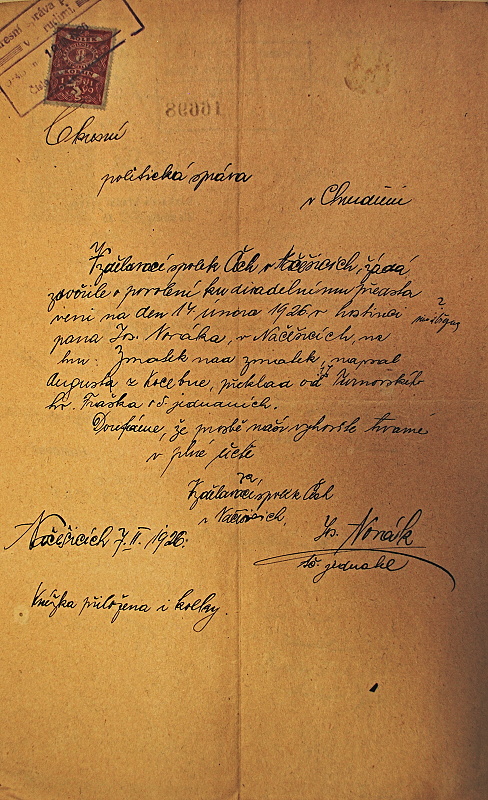 KOLEK
5
16698
Okresní
politická správa
v Chrudimi
Vzdělavací spolek Čech v Načešicích, žádá
zdvořile o povolení ku divadelnímu předsta
vení na den 14 února 1926 v hostinci
pana Jos. Nováka, v Načešicích, na
hru: Zmatek nad zmatek, napsal
Augusta z Kocebue, překlad od
hr. Fraška o 5 jednaních.
Doufáme, že prosbě naší vyhovíte trváme
v plné úctě
za
Vzdělavací spolek Čech
v Načešicích,
Načešicích 7. II. 1926.
Jos. Novák
t. č. jednatel
Knížka přiložena i kolky.